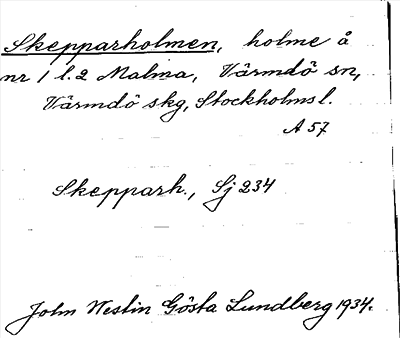 Skepparholmen, holme å
nr 1 l. 2 Malma, Värmdö sn,
Värmdö skg, Stockholms l.
A 57
Skepparh., Sj 234
John Westin Gösta Lundberg 1934.